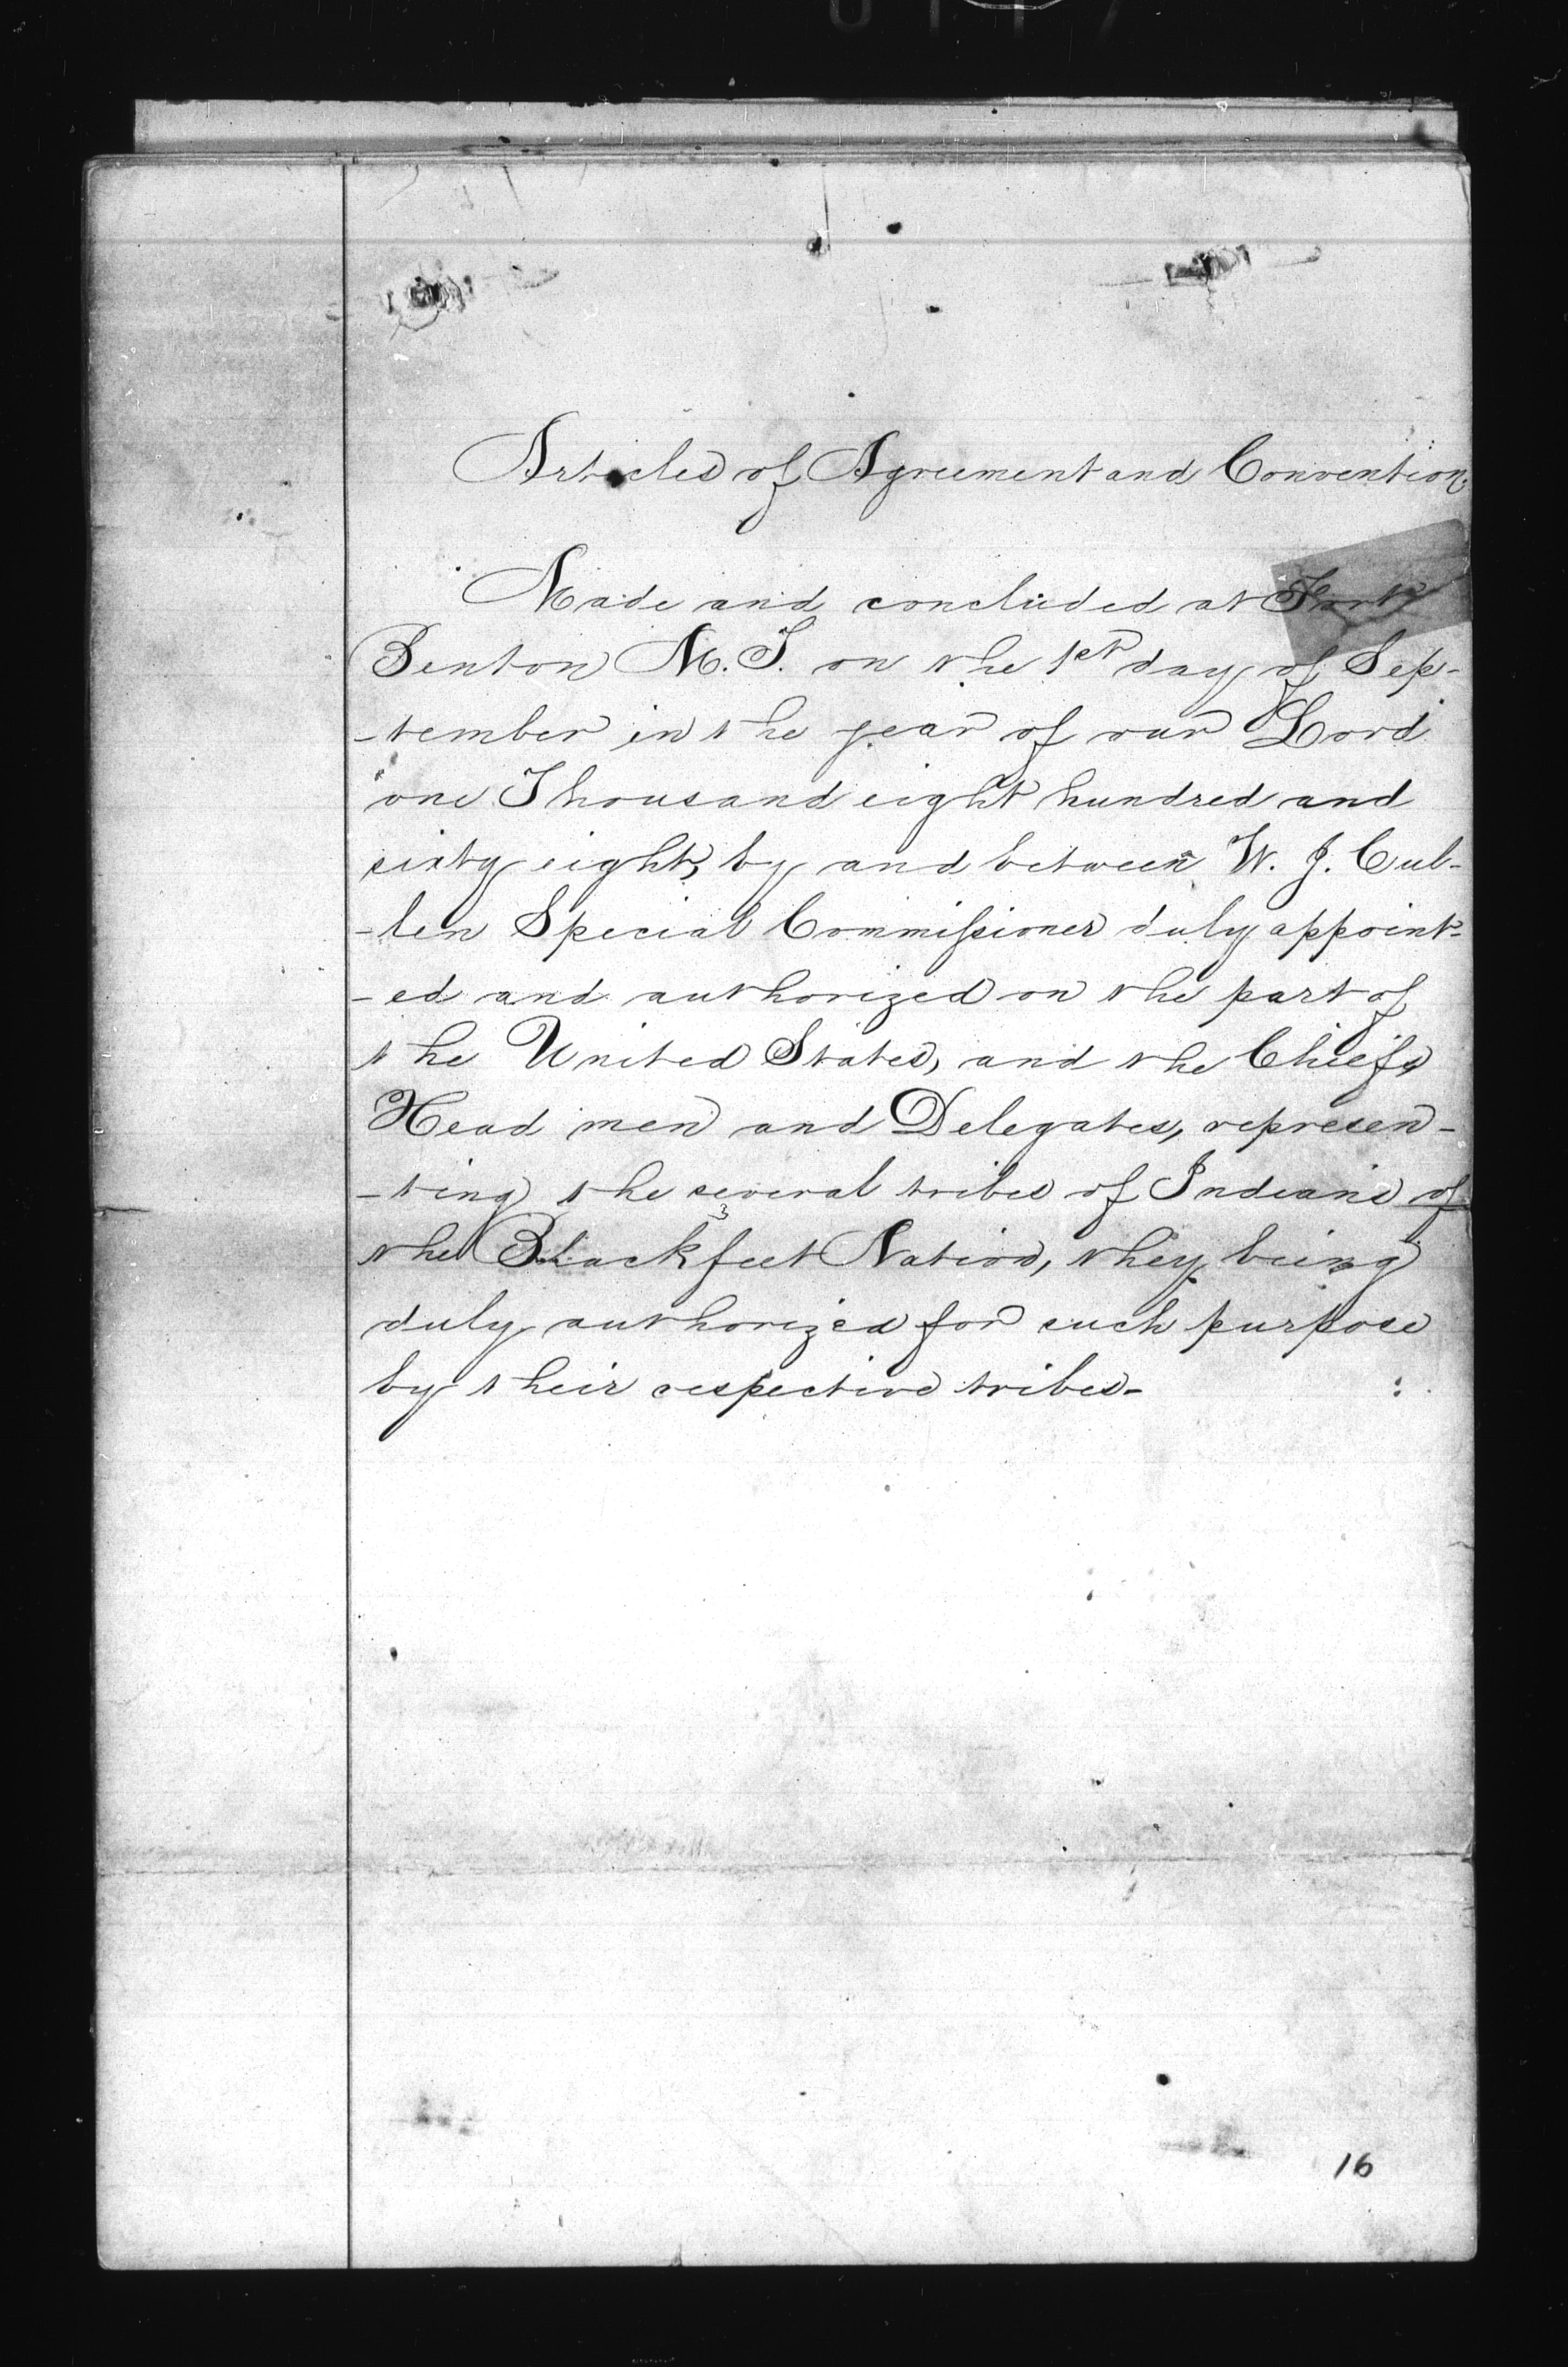 Articles of Agreement and Convention.
Made and concluded at Fort
Benton M. T. on the 1st day of Sep-
-tember in the year of our Lord
one Thousand eight hundred and
sixty eight, by and between W. J. Cul-
-len Special Commissioner duly appoint-
-ed and authorized on the part of
the United States, and the Chiefs
Head men and Delegates, represen-
-ting the several tribes of Indians of
the Blackfeet Nation, they being
duly authorized for such purpose
by their respective tribes-
16